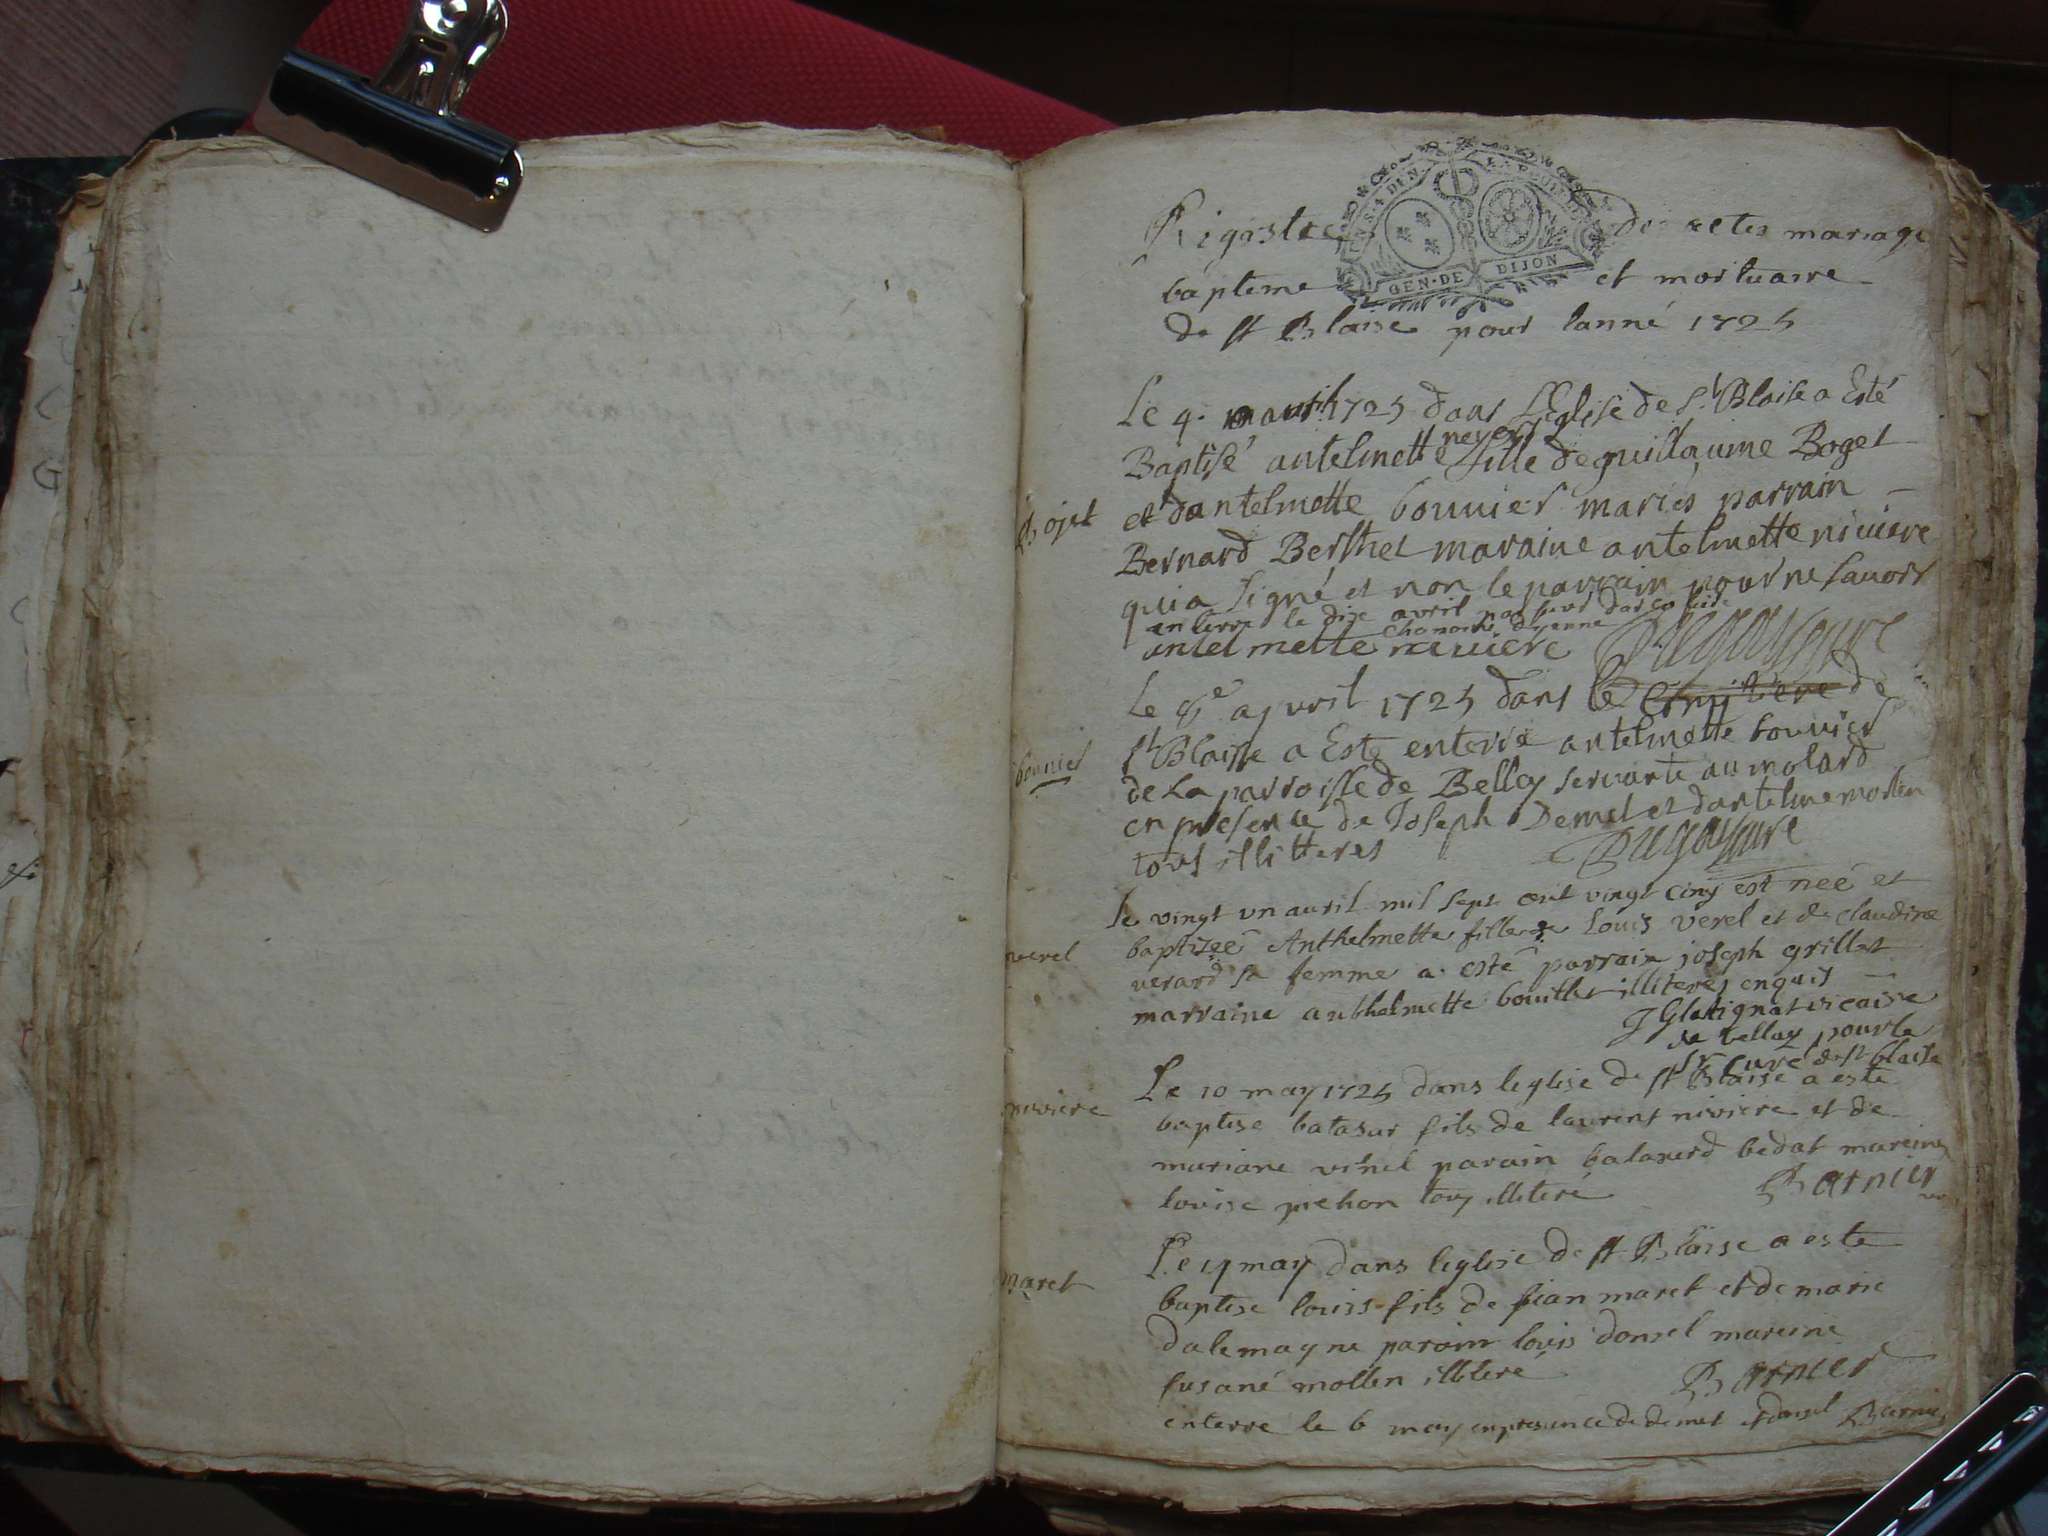 Rigistre des actes mariage
GEN·DE DIJON
bapteme et mortuaire
de st Blaise pour lanné 1725
Le 4. avril 1725 dans LEglise de St Blaise a Esté
Baptisé antelmette fille de guillaume Boget
Bojet
et dantelmette bouvier mariés parrain
Bernard Berthet maraine antelmette niviere
qui a signé et non le parrain pour ne savoir
enterre le dixe avril par
antelmette niviere
Le 8e avril 1725 dans le Cimitiere de
st Blaise a Esté enterré antelmette bouvier
bouvier
de La parroisse de Belley servante au molard
en presence de Joseph Demet et dantelme mollen
tous illitteres
Le vingt un avril mil sept cent vingt cinq est neé et
baptizeé Anthelmette fille de Louis verel et de claudine
verel
verard sa femme a esté parrain joseph grillet
marraine anthelmette bouillet illiteres enquis
vicaire
de bellay pour le
sr curé de st blaise
Le 10 may 1725 dans leglise de st Blaise a este
niviere
baptise batasar fils de laurent niviere et de
mariane vinel parain balazard bedat mareine
louise pichon tous illiteré
Barnier
Le 4 may dans leglise de st Blaise a este
maret
baptise louis fils de jian maret et de marie
dalemagne parain louis donsel mareine
susané mollen illiteré
Barnier
enterre le 6 may en presence de demet et donsel Barnier